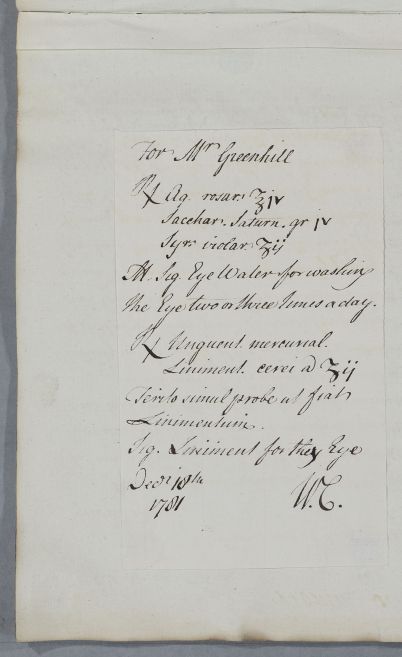 For Mr Greenhill
℞ Aq. rosar. ℥iv
Sacchar. Saturn. gr iv
Syr. violar. ʒij
M. Sig. Eye Water for washing
the Eye two or three times a day.
℞ Unguent. mercurial.
Liniment. cerei a ʒij
Terito simul probe ut fiat
Linimentum.
Sig. Liniment for the Eye
Decr 18th
1781 W.C.